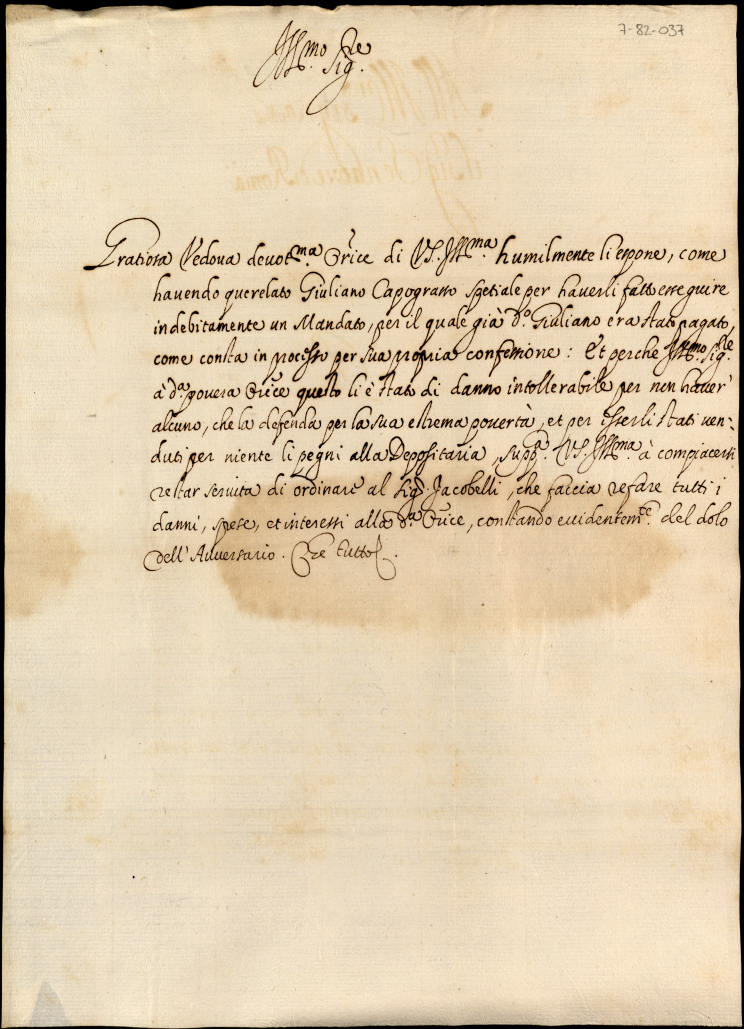 7-82-037
Ill.mo Sig.re
Gratiosa Vedova devot.ma Or̃ice di VS. Ill.ma humilmente li espone, come
havendo querelato Giuliano Capograsso spetiale per haverli fatto esseguire
indebitamente un Mandato, per il quale già d.o Giuliano era stato pagato,
come consta in processo per sua propria confessione: Et perche Ill.mo Sig.re
à d.a povera Or̃ice questo li è stato di danno intollerabile per non haver'
alcuno, che la defenda per la sua estrema povertà, et per esserli stati ven-
duti per niente li pegni alla Depositaria, supp.a VS. Ill.ma à compiacersi
restar servita di ordinare al Sig.r Jacobelli, che faccia refare tutti i
danni, spese, et interessi alla d.a Or̃ice, constando evidentem.te del dolo
dell'Adversario. Che tutto